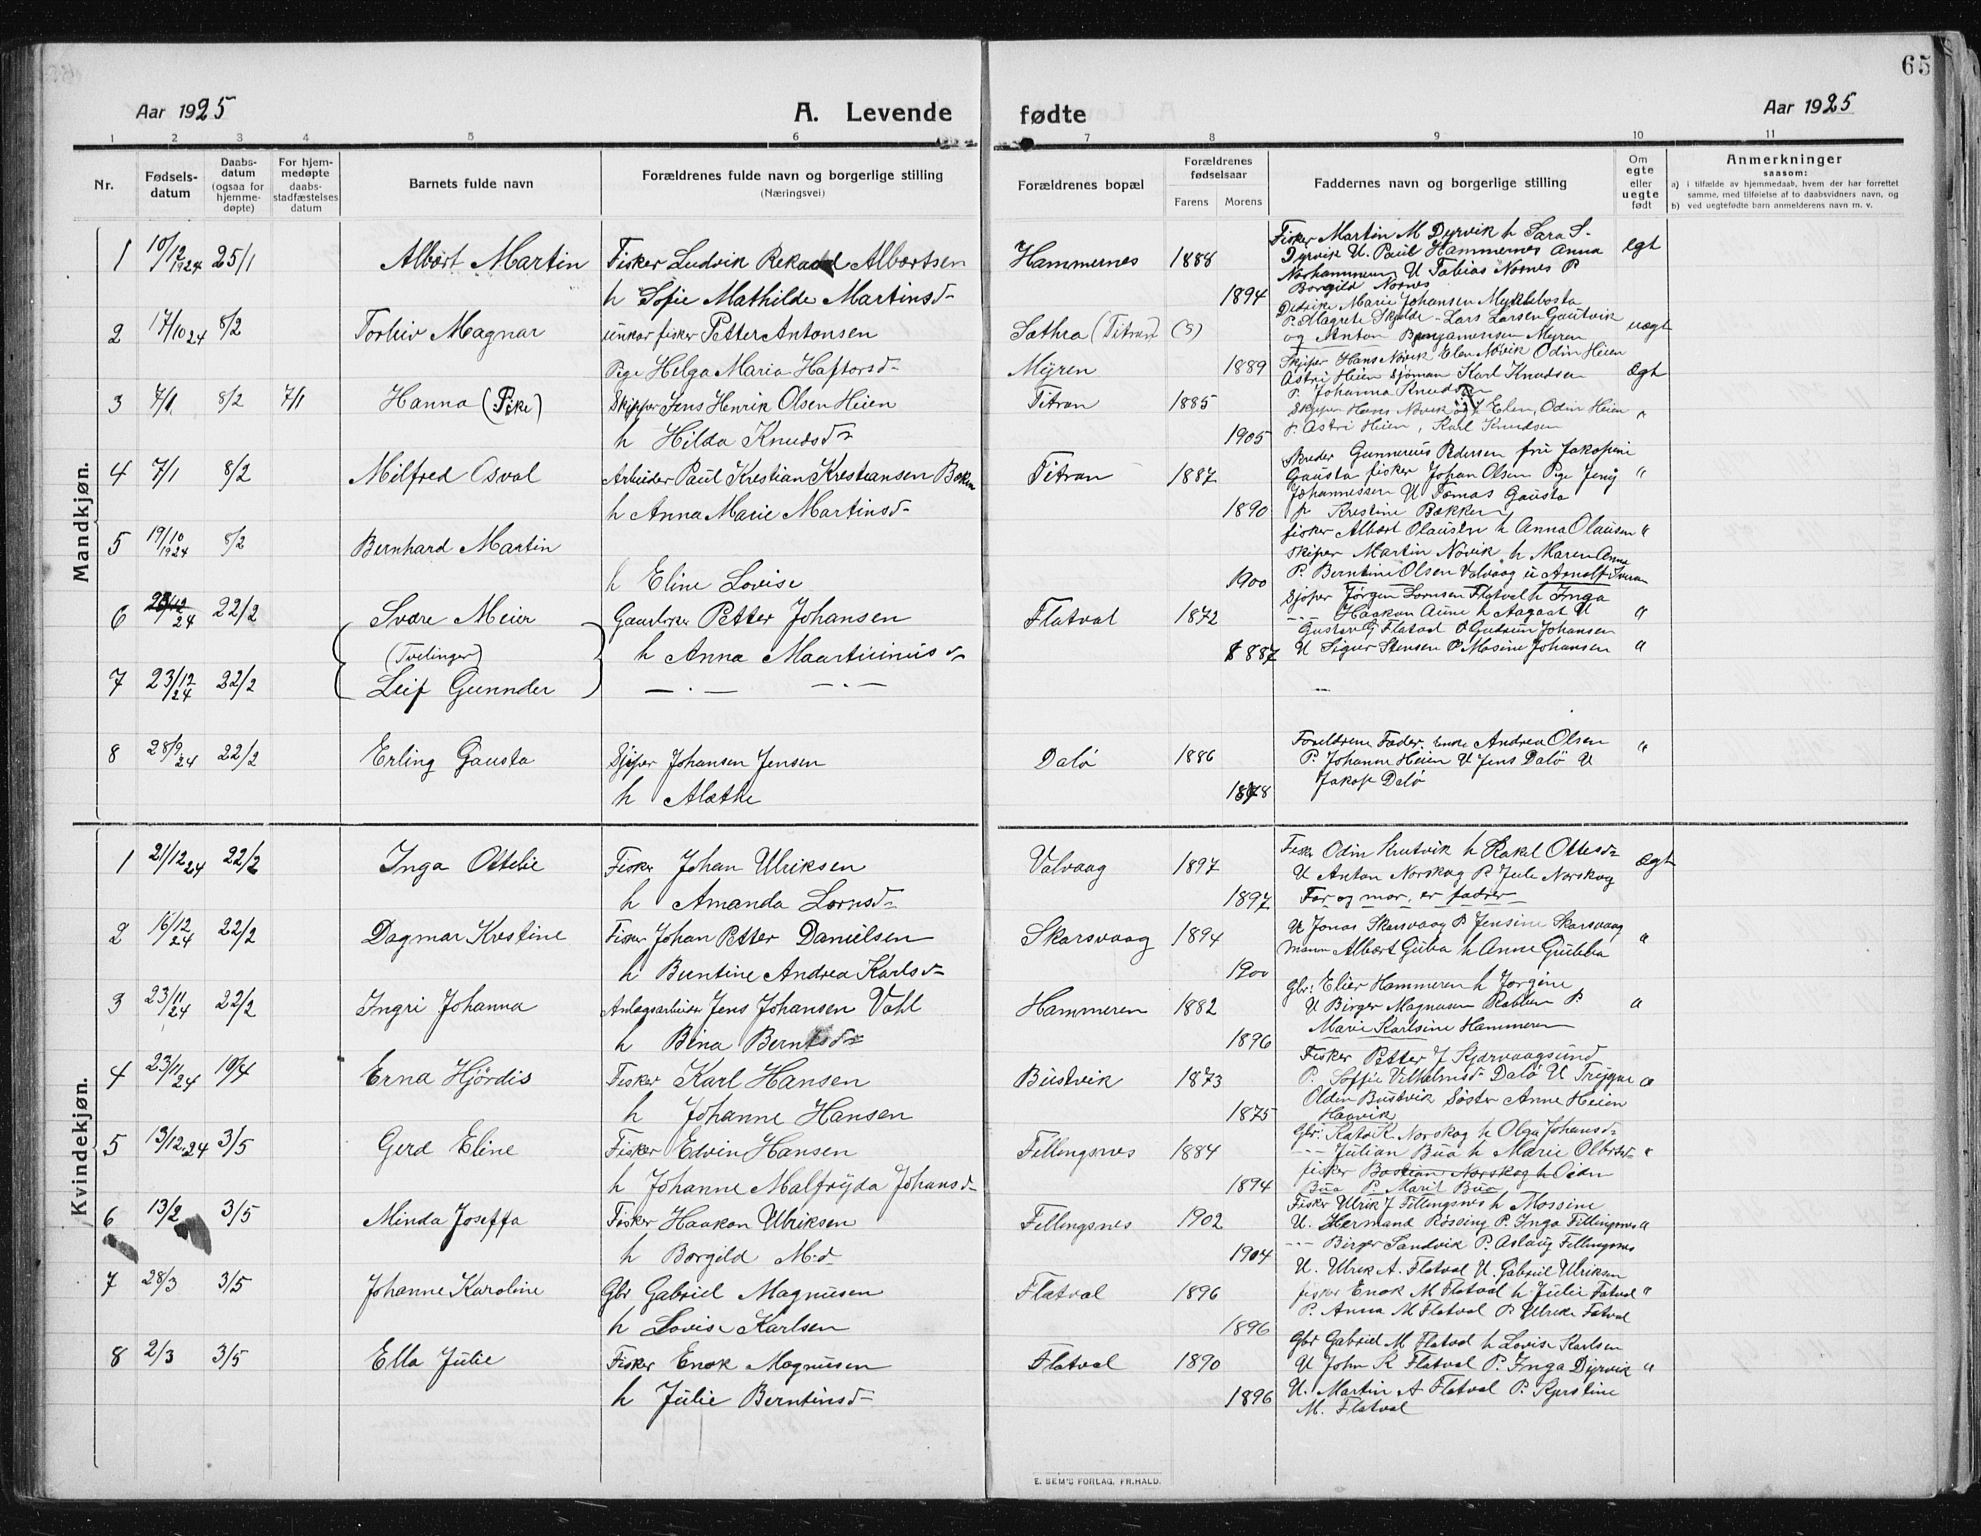 65
Aar 1925
A. Levende fødte
Aar 1925
1 2 3 4 5 6 7 8 9 10 11
Nr.
Fødsels-
datum
Daabs-
datum
(ogsaa for
hjemme-
døpte)
For hjem-
medøpte
daabs-
stadfæstelses
datum
Barnets fulde navn
Forældrenes fulde navn og borgerlige stilling
(Næringsvei)
Forældrenes bopæl
Forældrenes
fødselsaar
Farens Morens
Faddernes navn og borgerlige stilling
Om
egte
eller
uegte
født
Anmerkninger
saasom:
a) i tilfælde av hjemmedaab, hvem der har forrettet
samme, med tilføielse af to daabsvidners navn, og
b) ved uegtefødte barn anmelderens navn m. v.
Mandkjøn.
1 10/12 1924 25/1 Albert Martin Fisker Ludvik Albertsen Hammernes 1888 egt
h Sofie Mathilde Martinsd- 1894
Fisker Martin M Dyrvik h Sara S-
Dyrvik U. Paul Hammernes Anna
Norhammern U Tobias Nosnes P
Borgild Nosnes
2 17/10 24 8/2 Torleiv Magnar unkar fisker Petter Antonsen Sæthra (Titran) (S) uægt
Pige Helga Maria Haftorsd- Myren 1889
Didrik Marie Johansen Myklebosta
P. Magrete Skjølde - Lars Larsen Gautvik
og Anton Benjaminsen Myren
3 7/1 8/2 7/1 Hanna (Pike) Skipper Jens Henrik Olsen Heien Titran 1885 Ægt
h Hilda Knudsd- 1905
Skiper Hans Nøvik Elen Nøvik Odin Heien
Astri Heien Sjøman Karl Knudsen
P. Johanna Knudsen
Skipper Hans Nøvik og f Elen, Odin Heien "
p. Astri Heien, Karl Knudsen
4 7/1 8/2 Milfred Osval Arbeider Paul Krestian Krestiansen Titran 1887 "
h Anna Marie Martinsd- 1890
Skreder Gunnerius Pedersen fru Jakopine
Gausta fisker Johan Olsen Pige Jeny
Johannessen U Tomas Gausta
p Kristine Bækken
5 19/10 1924 8/2 Bernhard Martin "
h Eline Lovise 1900
fisker Albert Olausen h Anna Olausen
Skiper Martin Nøvik h Maren Anna
P. Berntine Olsen Valvaag u Arnolf
6 23/12 24 22/2 Svære Meier Gaardbruker Petter Johansen Flatval 1872 "
(Tvilinger) h Anna Maartinius d- 1887
Sjøper Jørgen Lornsen Flatval h Inga
- - - Haakon Aune h Aagaat U
Gustav G Flatval P Gudrun Johansen
U Sigur Stensen P Mosine Johansen "
7 23/12 24 22/2 Leif Gunnder — . — — . —
8 28/9 24 22/2 Erling Gausta Sjøper Johansen Jensen Dalø 1886 "
h Alæthe
Foreldrene Fader. Enke Andrea Olsen
P. Johanne Heien U Jens Dalø U
Jakop Dalø
Kvindekjøn.
1 21/12 24 22/2 Inga Ottelie Fisker Johan Ulriksen Valvaag 1897 Ægt
h Amanda Lornsd- 1897
Fisker Odin Krutvik h Rakel Ottesd-
U Anton Norskog P Jule Norskog
Far og mor er fadrer
2 16/12 24 22/2 Dagmar Kristine Fisker Johan Petter Danielsen Skarsvaag 1894 "
h Berntine Andrea Karlsd- 1900
U Jonas Skarsvaag P Jensine Skarsvaag
Mann Albert Guba h Anne Gubba
3 23/11 24 22/2 Ingri Johanna Anlægsarbeider Jens Johansen Vahl Hammeren 1882 "
h Bina Berntsd- 1896
Gbr: Elier Hammeren h Jorgine
U Birger Magnusen Rabben P
Marie Karlsine Hammeren
4 23/11 24 19/4 Erna Hjördis Fisker Karl Hansen Bustvik 1873 "
h Johanne Hansen 1875
Fisker Petter J Kjørvaagsund
P. Soffie Vilhelmsd- Dalø U Trygve
Odin Bustvik Søster Anne Heien
Haavik
5 13/12 24 3/5 Gerd Eline Fisker Edvin Hansen Fillingsnes 1884 "
h Johanne Malfryda Johansd- 1894
Gbr: Norskog h Olga Johansd-
- - - Julian Bua h Marie Olbertsd-
fisker Bastian Norskog h Odin
Bua P. Marit Bua
6 13/2 3/5 Minda Joseffa Fisker Haakon Ulriksen Fillingsnes 1902 "
h Borgild M-d- 1904
Fisker Ulrik J Fillingsnes h Mossine
U. Hermand Røssing P. Inga Fillingsnes
- - - Birger Sandvik P. Aslaug Fillingsnes
7 28/3 3/5 Johanne Karoline Gbr Gabriel Magnusen Flatval 1896 "
h Lovise Karlsen 1896
U. Ulrik A. Flatval U. Gabriel Ulriksen
fisker Enok M Flatval h Julie Fatval
P. Anna M Flatval P Ulrike Fatval
8 2/3 3/5 Ella Julie Fisker Enok Magnusen Flatval 1890 "
h Julie Berntinsd- 1896
Gbr Gabriel M Flatval h Lovise Karlsen
U John K Flatval P. Inga Dyrvik
U. Martin A Flatval P. Kjerstine
M. Flatval
E. SEM'S FORLAG, FR.HALD.